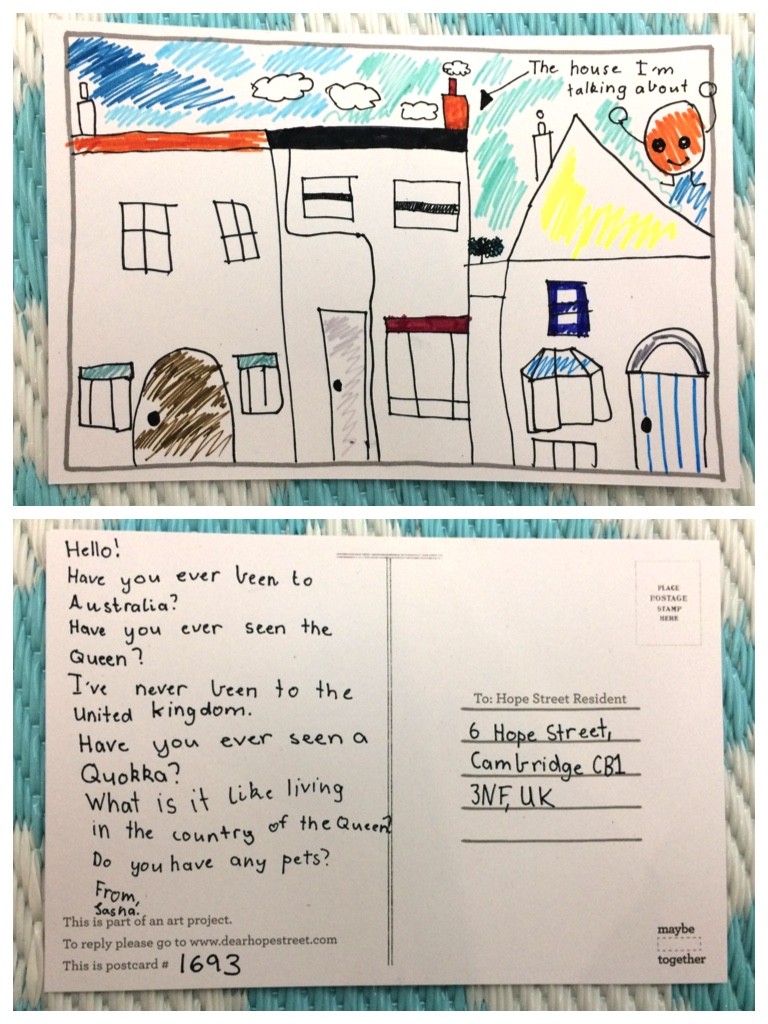 The house I'm
talking about
Hello!
Have you ever been to
Australia?
Have you ever seen the
Queen?
I've never been to the
United kingdom.
Have you ever seen a
Quokka?
What is it like living
in the country of the Queen?
Do you have any pets?
From,
Sasha.
This is part of an art project.
To reply please go to www.dearhopestreet.com
This is postcard # 1693
PLACE
POSTAGE
STAMP
HERE
To: Hope Street Resident
6 Hope Street,
Cambridge CB1
3NF, UK
maybe
together